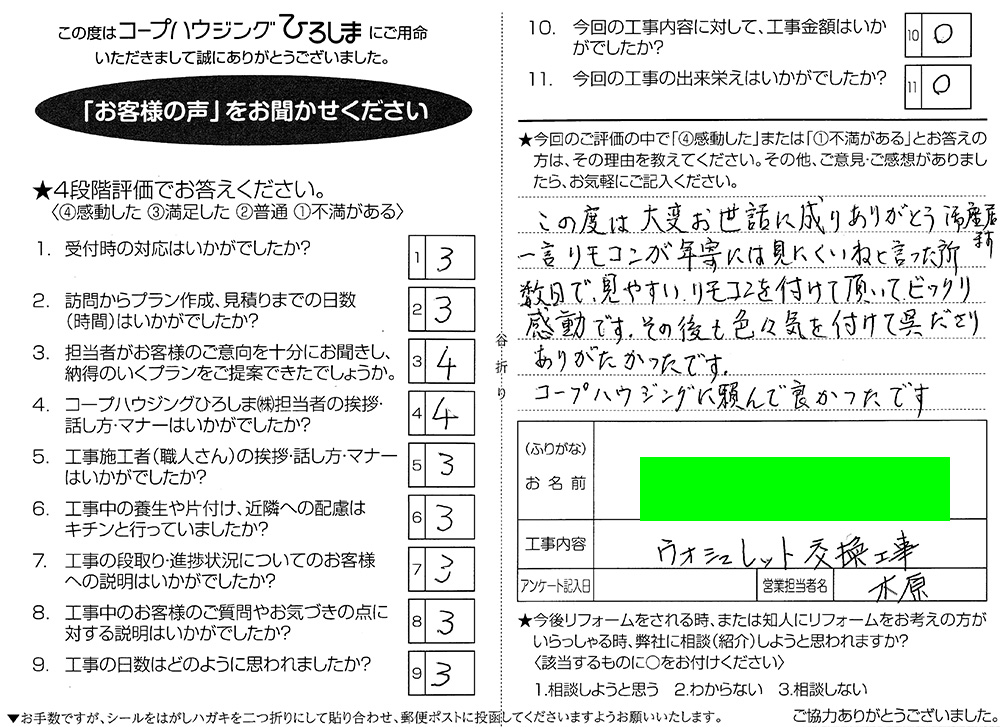 この度はコープハウジングひろしまにご用命
いただきまして誠にありがとうございました。
「お客様の声」をお聞かせください
★4段階評価でお答えください。
〈④感動した ③満足した ②普通 ①不満がある〉
1. 受付時の対応はいかがでしたか?
1 3
2. 訪問からプラン作成、見積りまでの日数
(時間)はいかがでしたか?
2 3
3. 担当者がお客様のご意向を十分にお聞きし、
納得のいくプランをご提案できたでしょうか。
3 4
4. コープハウジングひろしま㈱担当者の挨拶・
話し方・マナーはいかがでしたか?
4 4
5. 工事施工者(職人さん)の挨拶・話し方・マナー
はいかがでしたか?
5 3
6. 工事中の養生や片付け、近隣への配慮は
キチンと行っていましたか?
6 3
7. 工事の段取り・進捗状況についてのお客様
への説明はいかがでしたか?
7 3
8. 工事中のお客様のご質問やお気づきの点に
対する説明はいかがでしたか?
8 3
9. 工事の日数はどのように思われましたか?
9 3
▼お手数ですが、シールをはがしハガキを二つ折りにして貼り合わせ、郵便ポストに投函してくださいますようお願いいたします。
谷折り
10. 今回の工事内容に対して、工事金額はいか
がでしたか?
10 0
11. 今回の工事の出来栄えはいかがでしたか?
11 0
★今回のご評価の中で「④感動した」または「①不満がある」とお答えの
方は、その理由を教えてください。その他、ご意見・ご感想がありまし
たら、お気軽にご記入ください。
この度は大変お世話に成りありがとう
一言リモコンが年寄には見にくいねと言った所
数日で、見やすいリモコンを付けて頂いてビックリ
感動です。その後も色々気を付けて呉ださり
ありがたかったです。
コープハウジングに頼んで良かったです
(ふりがな)
お名前
工事内容 ウオシュレット交換工事
アンケート記入日 営業担当者名 木原
★今後リフォームをされる時、または知人にリフォームをお考えの方が
いらっしゃる時、弊社に相談(紹介)しようと思われますか?
〈該当するものに○をお付けください〉
1.相談しようと思う 2.わからない 3.相談しない
ご協力ありがとうございました。